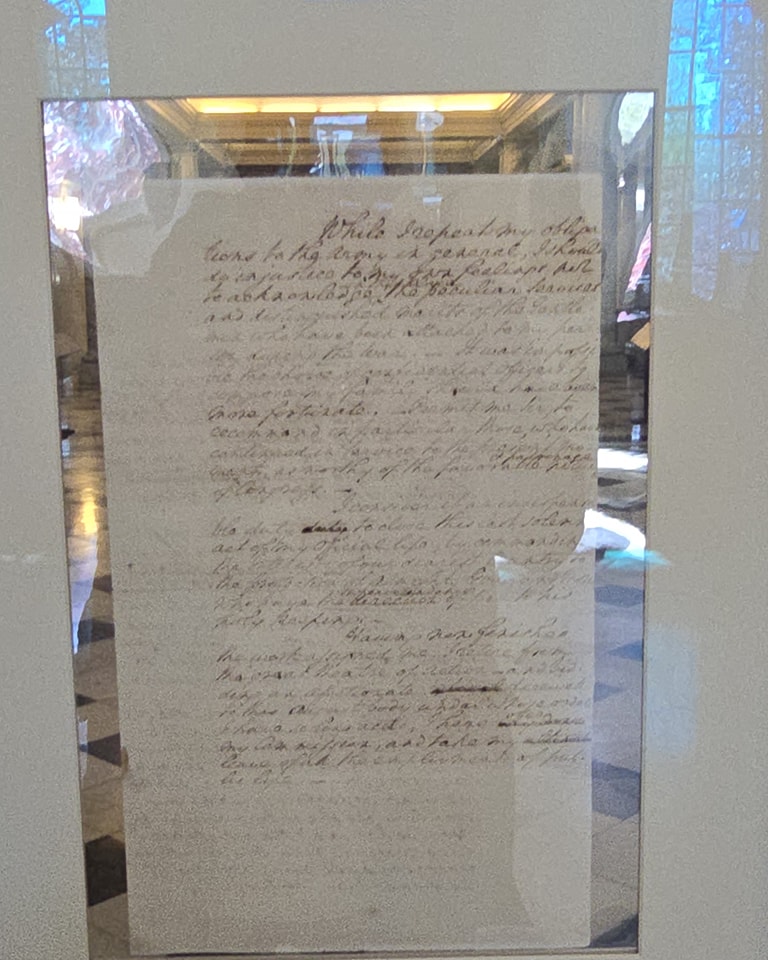 While I repeat my obliga
tions to the Army in general, I should
do injustice to my own feelings not
to acknowledge the peculiar services
and distinguished merits of the Gentle
men who have been attached to my per
son during the war. — It was impossi
ble the choice of confidential officers to
compose my family should have been
more fortunate. — Permit me Sir, to
recommend in particular those, who have
continued in service to the present mo
& patronage
ment, as worthy of the favorable notice
of Congress. —
I consider it as an indispensa
ble duty to close this last solemn
act of my official life, by commending
the Interests of our dearest country to
the protection of Almighty God, and those
superintendence
who have the direction of them to his
holy keeping. —
Having now finished
the work assigned me, I retire from
the great theatre of action — and bid
ding an affectionate farewell
to this august body, under whose orders
I have so long acted, I here
my Commission, and take my ultimate
leave of all the employments of pub-
lic life. —